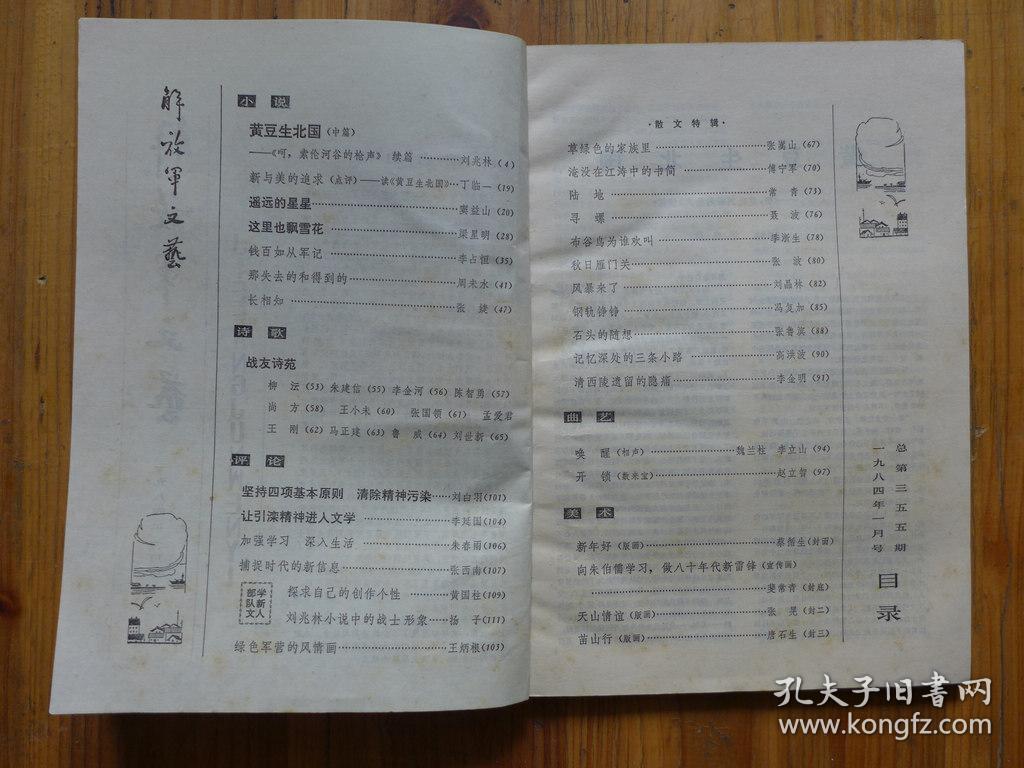 解放军文艺
小说
黄豆生北国（中篇）
——《呵，索伦河谷的枪声》续篇…………刘兆林（4）
新与美的追求（点评）——读《黄豆生北国》…丁临一（19）
遥远的星星…………窦益山（20）
这里也飘雪花…………梁星明（28）
钱百如从军记…………李占恒（35）
那失去的和得到的…………周来水（41）
长相知…………张婕（47）
诗歌
战友诗苑
柳沄（53）朱建信（55）李金河（56）陈智勇（57）
尚方（58）王小未（60）张国领（61）孟爱君
王刚（62）马正建（63）鲁威（64）刘世新（65）
评论
坚持四项基本原则 清除精神污染……刘白羽（101）
让引滦精神进入文学…………李延国（104）
加强学习 深入生活…………朱春雨（106）
捕捉时代的新信息…………张西南（107）
部队文学新人
探求自己的创作个性…………黄国柱（109）
刘兆林小说中的战士形象…扬子（111）
绿色军营的风情画…………王炳根（103）
·散文特辑·
草绿色的家族里…………张嵩山（67）
淹没在江涛中的书简…………傅宁军（70）
陆地…………常青（73）
寻螺…………聂波（76）
布谷鸟为谁欢叫…………季浙生（78）
秋日雁门关…………张波（80）
风暴来了…………刘晶林（82）
钢轨铮铮…………冯复加（85）
石头的随想…………张鲁滨（88）
记忆深处的三条小路…………高洪波（90）
清西陵遗留的隐痛…………李金明（91）
曲艺
唤醒（相声）…………魏兰柱 李立山（94）
开锁（数来宝）…………赵立智（97）
美术
新年好（版画）…………蔡衍生（封面）
向朱伯儒学习，做八十年代新雷锋（宣传画）
…………斐常青（封底）
天山情谊（版画）…………张晃（封二）
苗山行（版画）…………唐石生（封三）
总第三五五期
一九八四年一月号
目录
孔夫子旧书网
www.kongfz.com